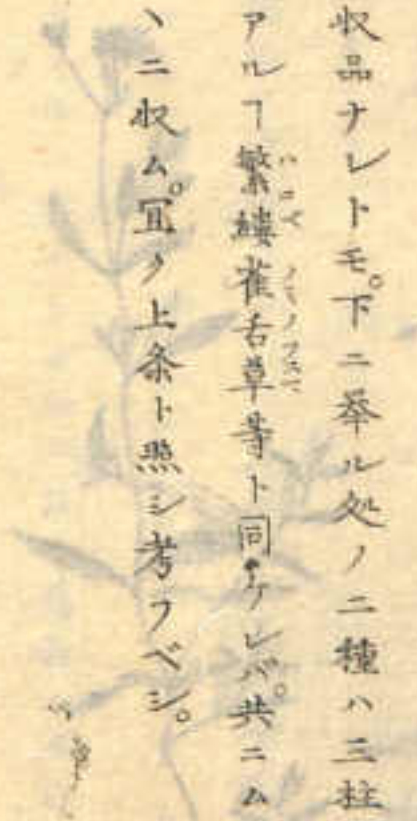 収品ナレトモ。下ニ挙ル処ノ二種ハ三柱
アルヿ繁縷雀舌草等ト同ケレバ。共ニム
ヽニ収ム。冝ク上条ト照シ考フベシ。